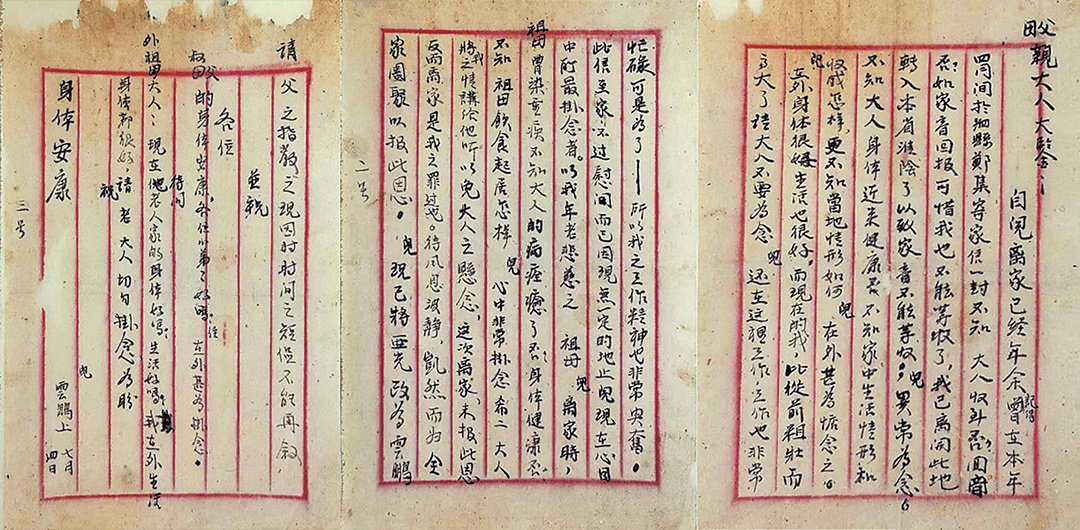 父母親大人大鑒：
自兒離家已經年余，記得曾在本年
四月間於桐縣鄭集寄家信一封不知 大人收到否？
否？如家音回报可惜我也不能等收了，我已离開此地
轉入本省淮陰了以致家音不能等收；兒異常為念。
不知大人身体近来健康否，不知家中生活情形和
收成怎樣，更不知當地情形如何 兒在外甚為惦念之。
兒在外身体很好，生活也很好。而現在的我，比從前粗壮而
高大了 請大人不要為念 兒还在這裡工作，工作也非常
忙碌可是為了——所以我之工作精神也非常與奮。
此信至家不过慰问而已因現無一定的地止兒現在心目
中所最掛念者。以我年老悲慈之 祖母 兒離家時，
祖母曾染重疾不知大人的病痊癒了否？身体健康否
不知 祖母飲食起居怎样 兒心中非常掛念希二大人
將我之情講给他听以免大人之懸念，这次离家，未报此恩
反而离家是我之罪过也。待风息波静，凱然而归 全
家團聚以报此恩。 兒現已將 改為雲鵬
二号
請
父之指教之現因时间之短促不能再敘
並祝
各位
叔父母的身体安康，各位小弟了好嗎？侄在外甚為掛念。
待问
外祖母大人：現在他老人家的身体好嗎？生活好嗎？我在外生活
身体都很好，請 老大人切勿掛念為盼
祝
身体安康
兒 雲鵬上
七月
四日
三号